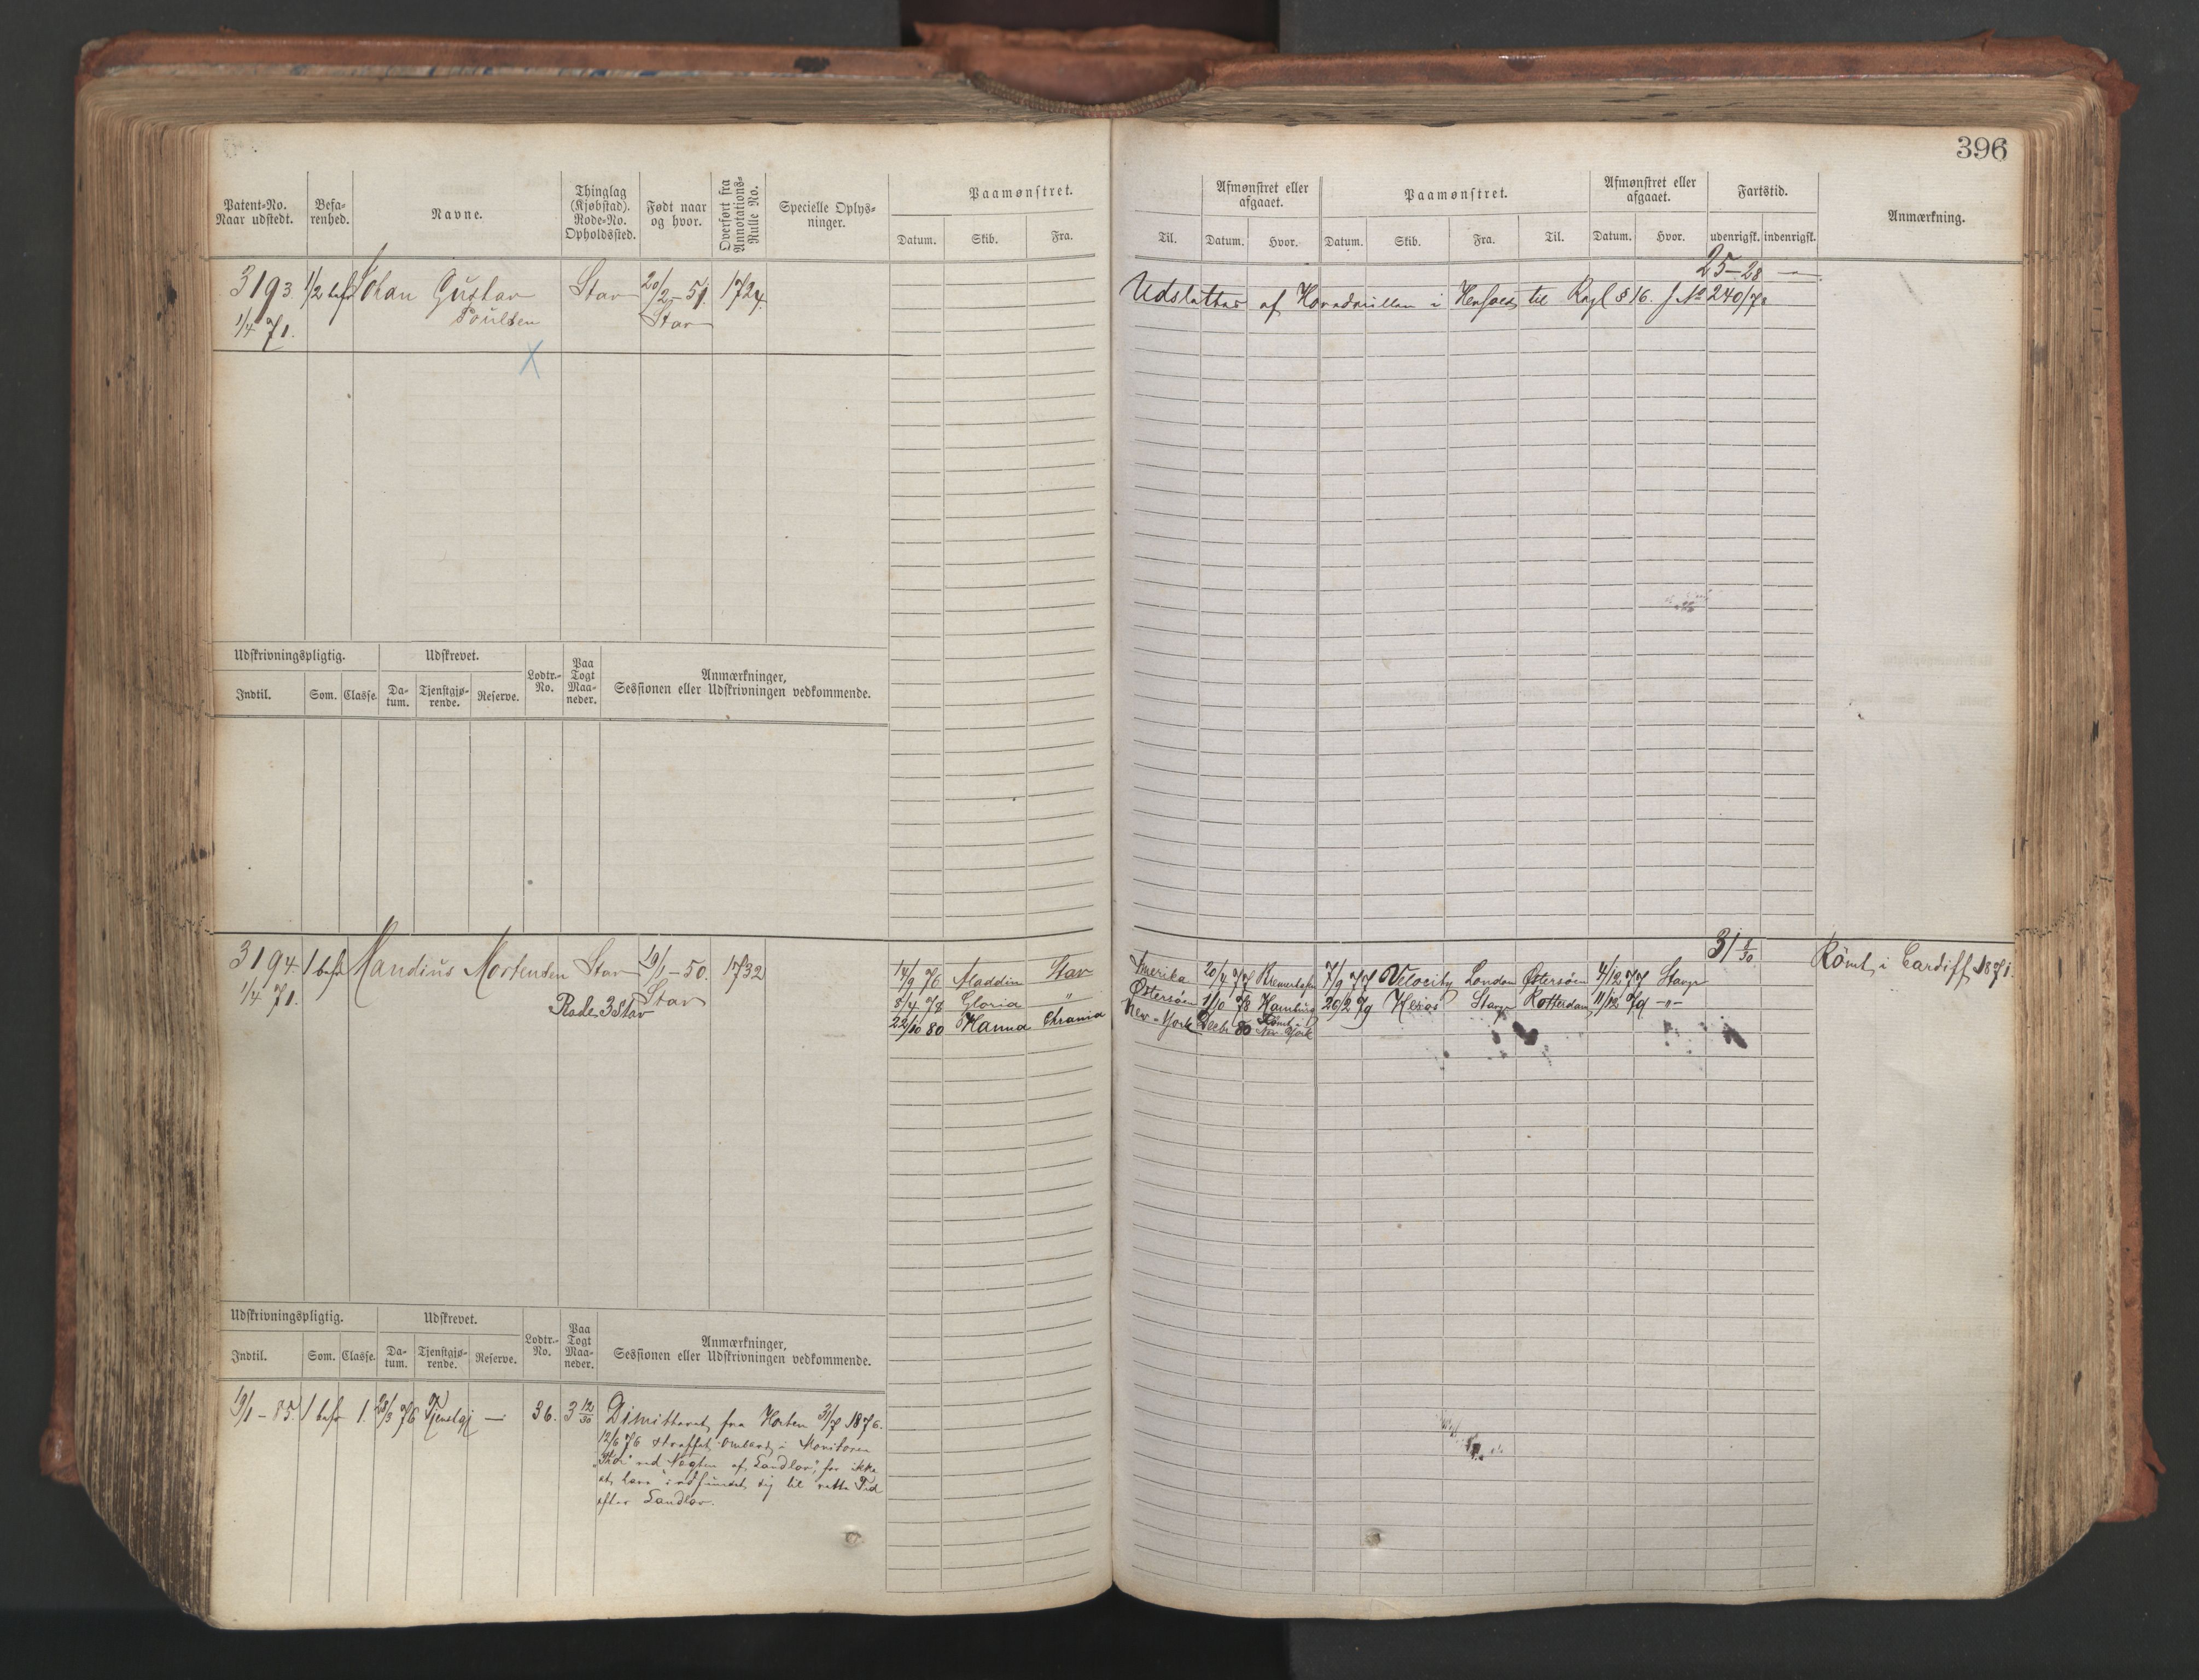 396
Patent-No.
Naar udstedt.
Befa-
renhed.
Navne.
Thinglag
(Kjøbstad).
Rode-No.
Opholdssted.
Født naar
og hvor.
Overført fra
Annotations-
Rulle No.
Specielle Oplys-
ninger.
Paamønstret.
Datum. Skib. Fra.
Til.
Afmønstret eller
afgaaet.
Datum. Hvor.
Paamønstret.
Datum. Skib. Fra. Til.
Afmønstret eller
afgaaet.
Datum. Hvor.
Fartstid.
udenrigsk. indenrigsk.
Anmærkning.
25-28 —
3193 1/2 bef Johan Gustav Stav 20/2 - 51. 1724.
Poulsen Stav
1/4 71.
Udslettes af Hovedrullen i Henhold til Kgl § 16. J No 240/72
Udskrivningspligtig.
Indtil. Som. Classe.
Udskrevet.
Da-
tum.
Tjenstgjø-
rende.
Reserve.
Lodtr.-
No.
Paa
Togt
Maa-
neder.
Anmærkninger,
Sessionen eller Udskrivningen vedkommende.
3194 1 bef Mandius Mortensen Stav 19/1 - 50. 1732
1/4 71. Rode 3 Stav Stav
14/9 76 Aladdin Stav
3/4 78 Gloria "
22/10 80 Hanna Chrania
31
Amerika 20/7 77 Bremerhafn 7/9 77 Velocity London Østersøen 4/12 77 Stavgr
Østersøen 1/10 78 Hamburg 26/2 79 Heros Stavgr Rotterdam 11/12 79 -"-
New-York Decbr 80 Rømt i New York
Rømt i Cardiff 1871.
Udskrivningspligtig.
Indtil. Som. Classe.
Udskrevet.
Da-
tum.
Tjenstgjø-
rende.
Reserve.
Lodtr.-
No.
Paa
Togt
Maa-
neder.
Anmærkninger,
Sessionen eller Udskrivningen vedkommende.
19/1 - 85. 1 bef 1. 28/3 76 Tjenstgj — 36. 3 12/30
Dimitteret fra Horten 3/7 1876.
12/6 76 straffet ombord i Monitoren
"Thor" ved Nægten af Landlov, for ikke
at have indfundet sig til rette Tid
efter Landlov.